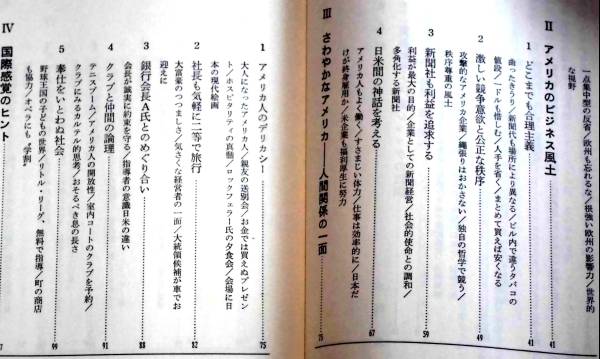 一点集中型の反省/欧州も忘れるな/根強い欧州の影響力/世界的
な視野
II アメリカのビジネス風土 41
1 どこまでも合理主義 41
曲ったきうり/新聞代も場所により異なる/ビル内で違うタバコの
値段/一ドルも惜しむ/人手を省く/まとめて買えば安くなる
2 激しい競争意欲と公正な秩序 49
攻撃的なアメリカ企業/縄張りはおかさない/独自の哲学で競う/
秩序尊重の風土
3 新聞社も利益を追求する 59
利益が最大の目的/企業としての新聞経営/社会的使命との調和/
多角化する新聞社
4 日米間の神話を考える 67
アメリカ人もよく働く/すさまじい体力/仕事は効率的に/日本だ
けが終身雇用か/米企業も福利厚生に努力
III さわやかなアメリカ――人間関係の一面 75
1 アメリカ人のデリカシー 75
大人になったアメリカ人/親友の送別会/お金では買えぬプレゼン
ト/ホスピタリティの真髄/ロックフェラー氏の夕食会/会場に日
本の現代絵画
2 社長も気軽に二等で旅行 82
大富豪のつつましさ/気さくな経営者の一面/大統領候補が車でお
迎えに
3 銀行会長A氏とのめぐり合い 88
会長が誠実に約束を守る/指導者の意識日米の違い
4 クラブと仲間の論理 91
テニスブーム/アメリカ人の開放性/室内コートのクラブを予約/
クラブにみるカルテル的思考/おそるべき息の長さ
5 奉仕をいとわぬ社会 99
野球王国の子どもの世界/リトル・リーグ、無料で指導/町の商店
も協力/オペラにも〝学割〟
IV 国際感覚のヒント